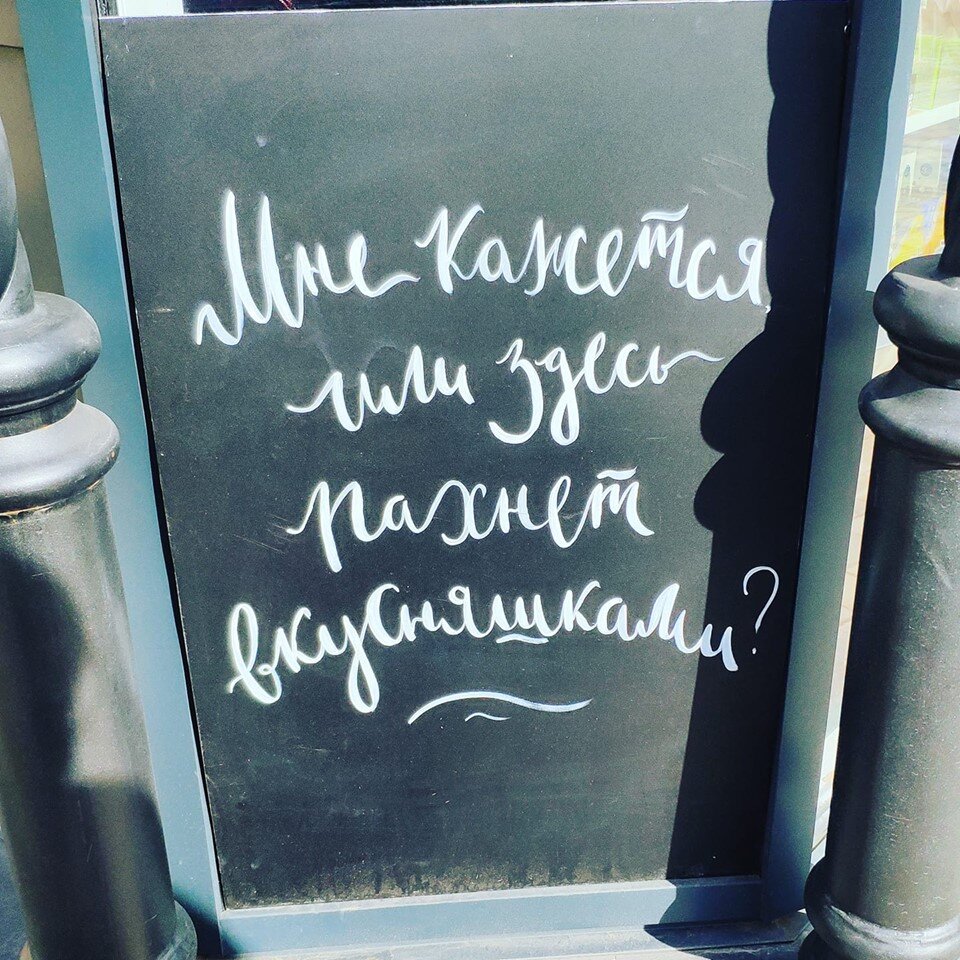 Мне кажется
или здесь
пахнет
вкусняшками?